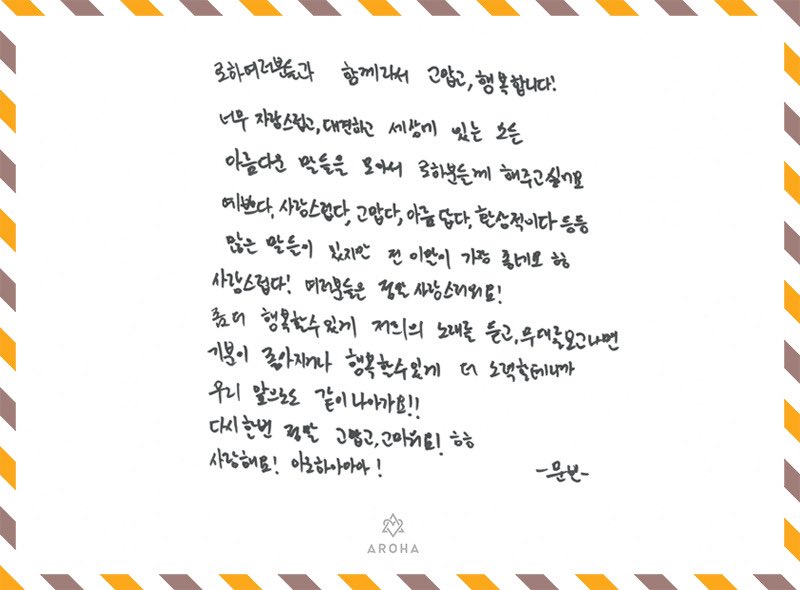 로하여러분들과 함께라서 고맙고, 행복합니다!
너무 자랑스럽고, 대견하고 세상에 있는 모든
아름다운 말들을 모아서 로하분들께 해주고싶어요
예쁘다, 사랑스럽다, 고맙다, 아름답다, 환상적이다 등등
많은 말들이 있지만 전 이말이 가장 좋네요 ㅎㅎ
사랑스럽다! 여러분들은 정말 사랑스러워요!
좀더 행복할수있게 저희의 노래를 듣고, 무대를보고나면
기분이 좋아지거나 행복할수있게 더 노력할테니까
우리 앞으로도 같이나아가요!!
다시한번 정말 고맙고, 고마워요! ㅎㅎ
사랑해요! 아로하아아아!
-문빈-
AROHA